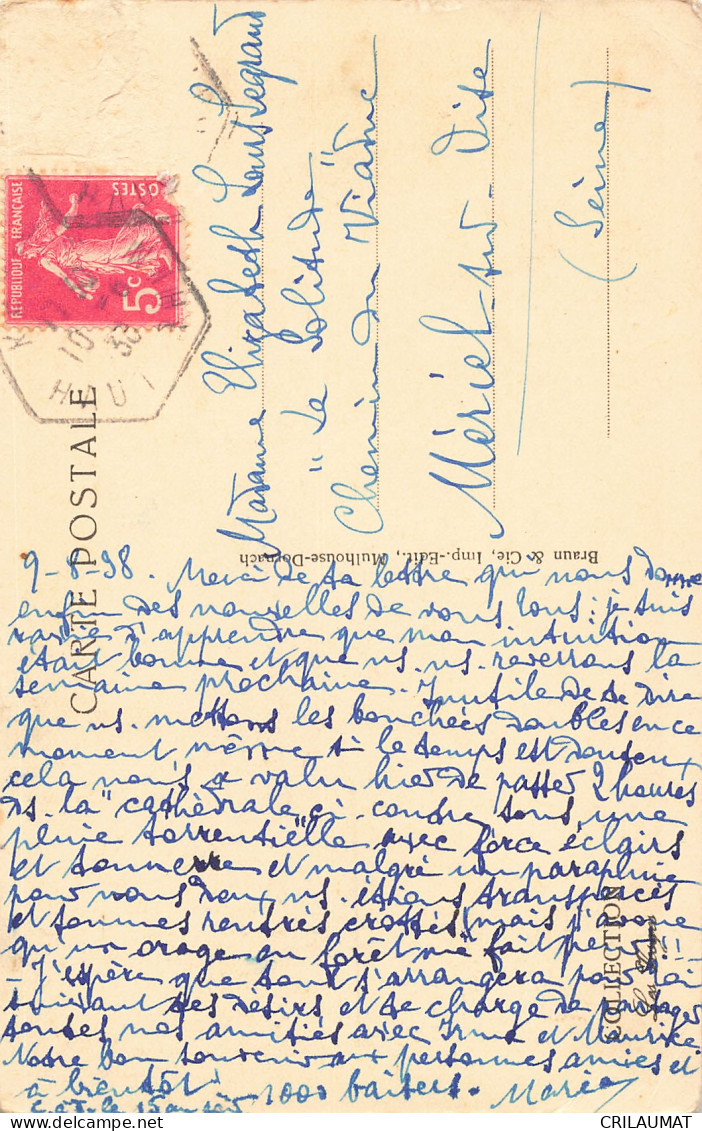 CARTE POSTALE
RÉPUBLIQUE FRANÇAISE
POSTES
5c
10
38
HAUT
Madame Elizabeth Louis Legrand
"La Solitude"
Chemin du Viaduc
Mériel-sur-Oise
(Seine)
Braun & Cie, Imp.-Edit., Mulhouse-Dornach
COLLECTION
9-8-38. Merci de ta lettre qui nous donne
enfin des nouvelles de vous tous : je suis
ravie d'apprendre que mon intuition
était bonne et que ns. ns. reverrons la
semaine prochaine. Inutile de te dire
que ns. mettons les bouchées doubles en ce
moment même si le temps est douteux
cela nous a valu hier de passer 2 heures
ds. la "cathédrale" ci-contre sous une
pluie torrentielle avec force éclairs
et tonnerre et malgré un parapluie
pour nous deux, ns. étions transpercés
et sommes rentrés crottés! mais j'avoue
qu'un orage en forêt me fait peur!!
- J'espère que tout s'arrangera pour toi
suivant tes désirs et te charge de partager
toutes nos amitiés avec Irma et Maurice
Notre bon souvenir aux personnes amies et
à bientôt 1000 baisers. Maria
le 15 au
CRILAUMAT